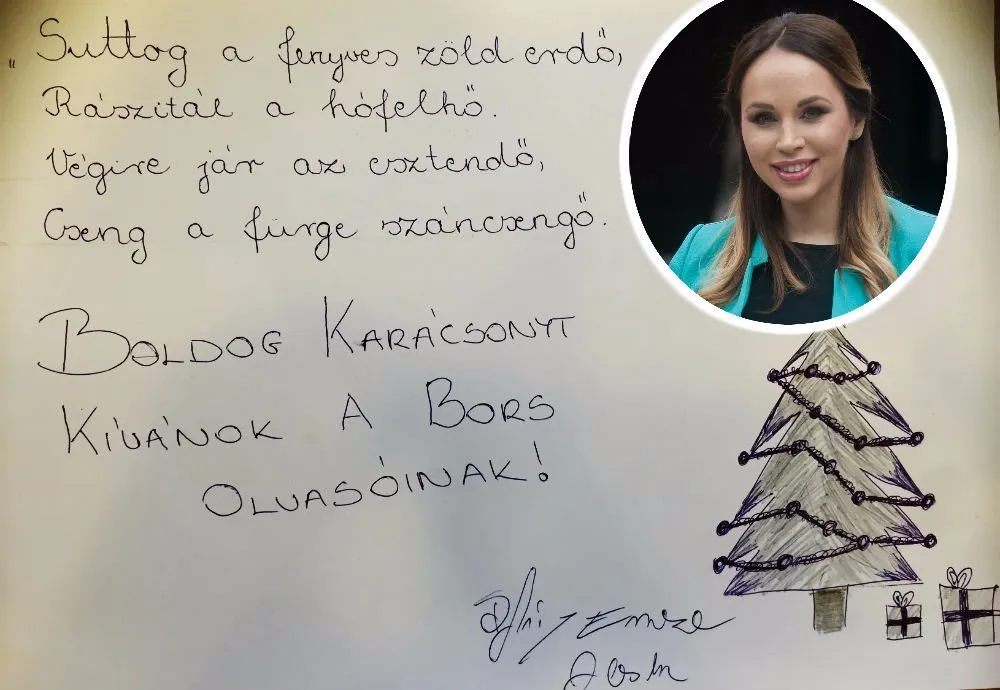 " Suttog a fenyves zöld erdő,
Rászitál a hófelhő.
Végire jár az esztendő,
Cseng a fürge száncsengő.
BOLDOG KARÁCSONYT
KÍVÁNOK A BORS
OLVASÓINAK!
Emese